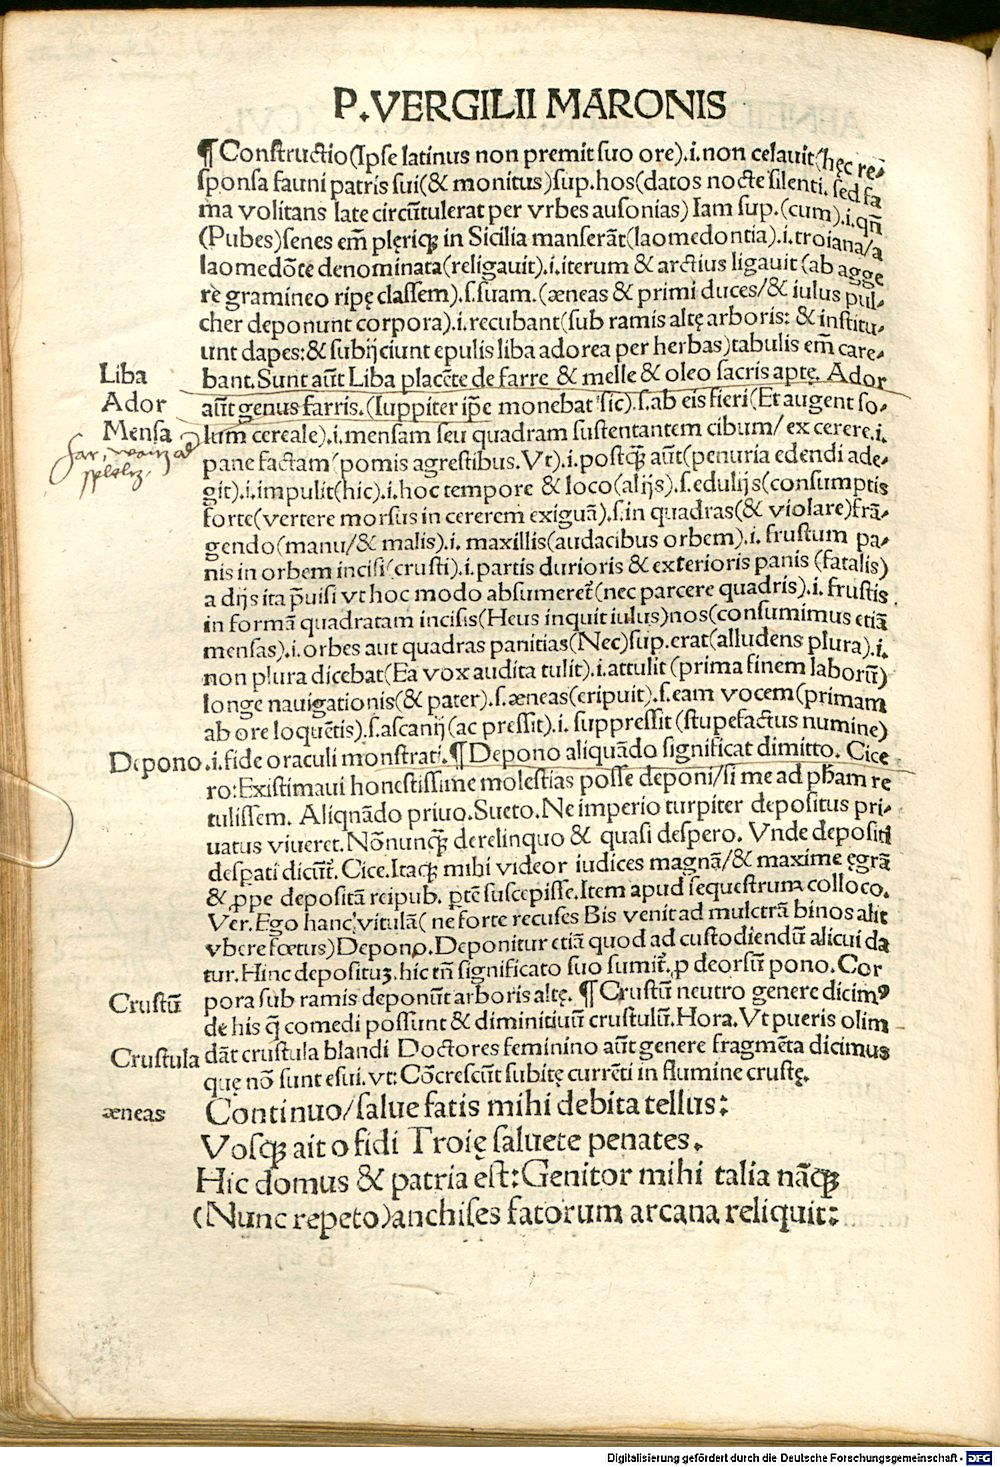 P.VERGILII MARONIS
¶ Constructio(Ipse latinus non premit suo ore).i.non celauit(hęc re⸗
sponsa fauni patris sui(& monitus)sup.hos(datos nocte silenti. sed fa
ma volitans late circūtulerat per vrbes ausonias) Iam sup.(cum).i.qn̄
(Pubes)senes em̄ plęriqꝫ in Sicilia manserāt(laomedontia).i.troiana/a
laomedōte denominata(religauit).i.iterum & arctius ligauit(ab agge
re gramineo ripę classem).s.suam.(æneas & primi duces/& iulus pul⸗
cher deponunt corpora).i.recubant(sub ramis altę arboris: & institu⸗
unt dapes:& subijciunt epulis liba adorea per herbas)tabulis em̄ care⸗
Liba bant.Sunt aūt Liba placēte de farre & melle & oleo sacris aptę. Ador
Ador aūt genus farris.(Iuppiter ip̄e monebat sic).s.ab eis fieri(Et augent so⸗
Mensa lum cereale).i.mensam seu quadram sustentantem cibum/ ex cerere.i.
far,
pane factam(pomis agrestibus.Vt).i.postqꝫ aūt(penuria edendi ade⸗
git).i.impulit(hic).i.hoc tempore & loco(alijs).s.edulijs(consumptis
forte(vertere morsus in cererem exiguā).s.in quadras(& violare)frā⸗
gendo(manu/& malis).i. maxillis(audacibus orbem).i. frustum pa⸗
nis in orbem incisi(crusti).i.partis durioris & exterioris panis (fatalis)
a dijs ita p̄uisi vt hoc modo absumeret̄(nec parcere quadris).i. frustis
in formā quadratam incisis(Heus inquit iulus)nos(consumimus etiā
mensas).i.orbes aut quadras panitias(Nec)sup.erat(alludens plura).i.
non plura dicebat(Ea vox audita tulit).i.attulit(prima finem laborū)
longe nauigationis(& pater).s.æneas(eripuit).s.eam vocem(primam
ab ore loquētis).s.ascanij(ac pressit).i. suppressit(stupefactus numine)
Depono .i.fide oraculi monstrati.¶ Depono aliquādo significat dimitto. Cice
ro:Existimaui honestissime molestias posse deponi/si me ad ph̄am re
tulissem. Aliquādo priuo.Sueto.Ne imperio turpiter depositus pri⸗
uatus viueret.Nōnunqꝫ derelinquo & quasi despero. Vnde depositi
despati dicūt̄. Cice.Itaqꝫ mihi videor iudices magnā/& maxime ęgrā
& ꝓpe depositā reipub. ꝑtē suscepisse.Item apud sequestrum colloco.
Ver.Ego hanc vitulā( ne forte recuses Bis venit ad mulctrā binos alit
vbere fœtus)Depono.Deponitur etiā quod ad custodiendū alicui da
tur.Hinc deposituꝫ.hic tn̄ significato suo sumit̄. ꝓ deorsū pono.Cor
Crustū pora sub ramis deponūt arboris altę. ¶ Crustū neutro genere dicimꝰ
de his q̄ comedi possunt & diminitiuū crustulū.Hora.Vt pueris olim
Crustula dāt crustula blandi Doctores feminino aūt genere fragmēta dicimus
quę nō sunt esui. vt: Cōcrescūt subitę currēti in flumine crustę.
æneas Continuo/salue fatis mihi debita tellus:
Vosqꝫ ait o fidi Troię saluete penates.
Hic domus & patria est:Genitor mihi talia nāqꝫ
(Nunc repeto)anchises fatorum arcana reliquit:
Digitalisierung gefördert durch die Deutsche Forschungsgemeinschaft - DFG